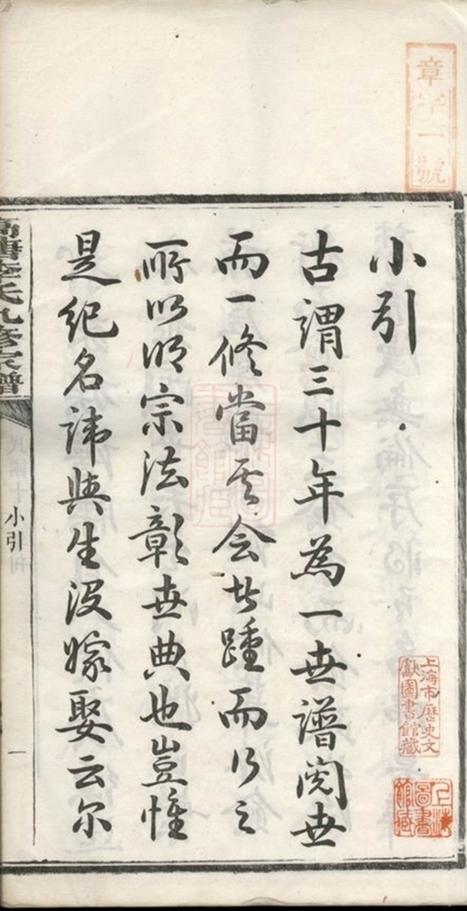 章字一號
小引
古謂三十年為一世譜閱世
而一修當其會者踵而行之
所以明宗法彰世典也豈惟
是紀名諱與生沒嫁娶云尔
氏九修家譜
小引
一
上海市歷史文
獻圖書館藏
上海
圖書
館藏